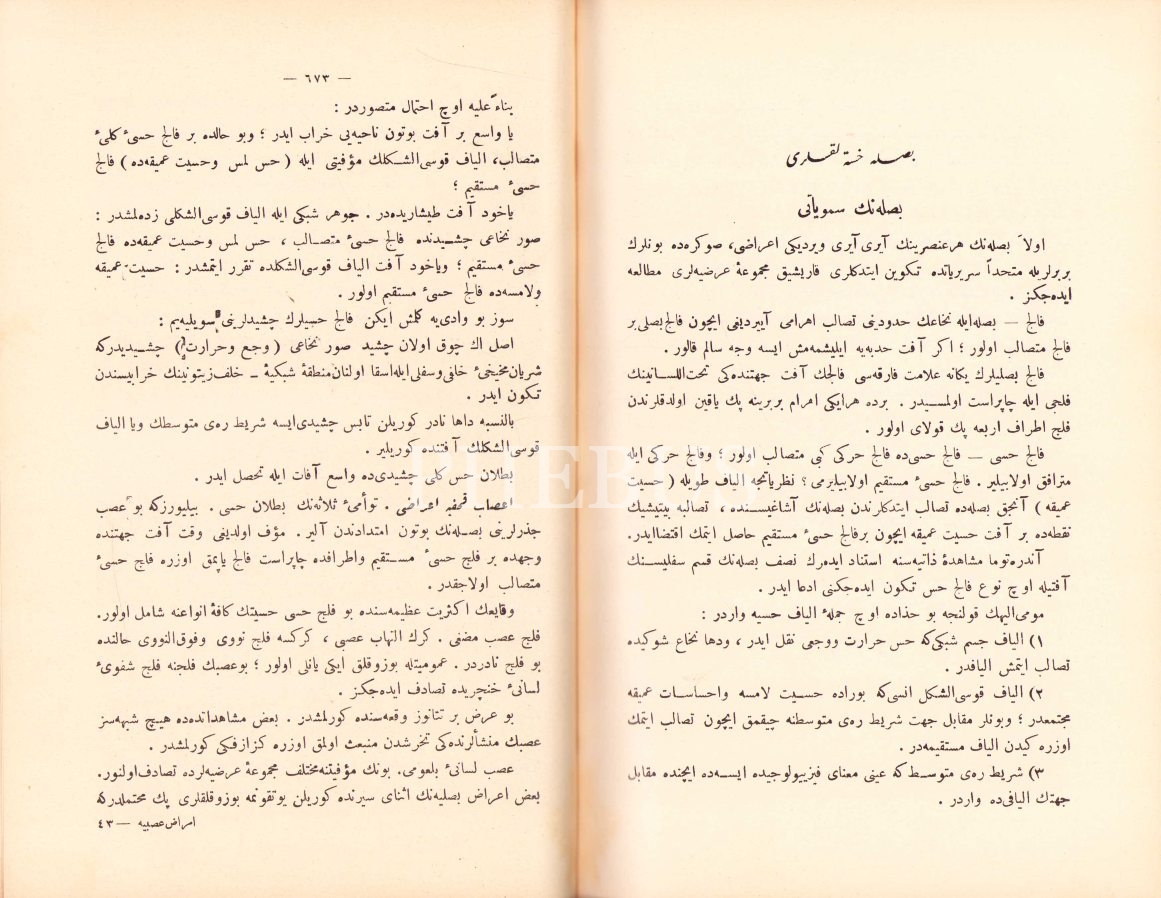 بصله خسته لقلری
بصله‌نك سمویاتی
اولاً بصله‌نك هرعنصرینك آیری آیری ویردیكی اعراضی، صوكره‌ده بونلرك
بربرلریله متحداً سریریاتده تكوین ایتدكلری قاریشیق مجموعهٔ عرضیه‌لری مطالعه
ایده‌جكز .
فالج — بصله‌ایله نخاعك حدودنی تصالب اهرامی آییردیغی ایچون فالج بصلی‌بر
فالج متصالب اولور ؛ اكر آفت حدبه‌یه ایلیشمه‌مش ایسه وجه سالم قالور .
فالج بصلیلرك یكانه علامت فارقه‌سی فالجك آفت جهتنده‌كی تحت‌اللسانینك
فلجی ایله چاپراست اولمسیدر . برده هرایكی اهرام بربرینه پك یاقین اولدقلرندن
فلج اطراف اربعه پك قولای اولور .
فالج حسی — فالج حسی‌ده فالج حركی كبی متصالب اولور ؛ وفالج حركی ایله
مترافق اولابیلیر . فالج حسیٔ مستقیم اولابیلیرمی ؟ نظریاتجه الیاف طویله ( حسیت
عمیقه ) آنجق بصله‌ده تصالب ایتدكلرندن بصله‌نك آشاغیسنده ، تصالبه بیتیشیك
نقطه‌ده بر آفت حسیت عمیقه ایچون برفالج حسیٔ مستقیم حاصل ایتمك اقتضاایدر.
آندره‌توما مشاهدهٔ ذاتیه‌سنه استناد ایده‌رك نصف بصله‌نك قسم سفلیسنك
آفتیله اوچ نوع فالج حس تكون ایده‌جكنی ادعا ایدر .
مومی‌الیهك قولنجه بو حذاده اوچ جملهٔ الیاف حسیه واردر :
١) الیاف جسم شبكی‌كه حس حرارت ووجعی نقل ایدر ، ودها نخاع شوكیده
تصالب ایتمش الیافدر .
٢) الیاف قوسی‌الشكل انسی‌كه بوراده حسیت لامسه واحساسات عمیقه
مجتمعدر ؛ وبونلر مقابل جهت شریط ره‌ی متوسطنه چیقمق ایچون تصالب ایتمك
اوزره كیدن الیاف مستقیمه‌در .
٣) شریط ره‌ی متوسط‌كه عینی معنای فیزیولوجیده ایسه‌ده ایچنده مقابل
جهتك الیافی‌ده واردر .
— ٦٧٣ —
بناءً علیه اوچ احتمال متصوردر :
یا واسع بر آفت بوتون ناحیه‌یی خراب ایدر ؛ وبو حالده بر فالج حسیٔ كلیٔ
متصالب، الیاف قوسی‌الشكلك مؤفیتی ایله ( حس لمس وحسیت عمیقه‌ده ) فالج
حسیٔ مستقیم ؛
یاخود آفت طیشاریده‌در . جوهر شبكی ایله الیاف قوسی‌الشكلی زده‌لمشدر :
صور نخاعی چشیدنده فالج حسیٔ متصالب ، حس لمس وحسیت عمیقه‌ده فالج
حسیٔ مستقیم ؛ ویاخود آفت الیاف قوسی‌الشكلده تقرر ایتمشدر : حسیت عمیقه
ولامسه‌ده فالج حسیٔ مستقیم اولور .
سوز بو وادی‌یه كلمش ایكن فالج حسیلرك چشیدلرینی سویلیه‌یم :
اصل اك چوق اولان چشید صور نخاعی ( وجع وحرارت ) چشیدیدركه
شریان مخیخیٔ خلفی وسفلی ایله‌اسقا اولنان‌منطقهٔ شبكیهٔ — خلف‌زیتونینك خرابیسندن
تكون ایدر .
بالنسبه داها نادر كوریلن تابس چشیدی‌ایسه شریط ره‌ی متوسطك ویا الیاف
قوسی‌الشكلك آفتنده كوریلیر .
بطلان حس كلی چشیدی‌ده واسع آفات ایله تحصل ایدر .
اعصاب قحفیه اعراضی . توأمیٔ ثلاثه‌نك بطلان حسی . بیلیورزكه بو عصب
جذرلرینی بصله‌نك بوتون امتدادندن آلیر . مؤف اولدیغی وقت آفت جهتنده
وجهده بر فلج حسیٔ مستقیم واطرافده چاپراست فالج یاپمق اوزره فلج حسیٔ
متصالب اولاجقدر .
وقایعك اكثریت عظیمه‌سنده بو فلج حسی حسیتك كافهٔ انواعنه شامل اولور.
فلج عصب مضفی . كرك التهاب عصبی ، كركسه فلج نووی وفوق‌النووی حالنده
بو فلج نادردر . عمومیتله بوزوقلق ایكی یانلی اولور ؛ بوعصبك فلجنه فلج شفویٔ
لسانیٔ خنجریده تصادف ایده‌جكز .
بو عرض بر تتانوز وقعه‌سنده كورلمشدر . بعض مشاهداتده‌ده هیچ شبهه‌سز
عصبك منشألرنده‌كی تخرشدن منبعث اولمق اوزره كزازفكی كورلمشدر .
عصب لسانیٔ بلعومی. بونك مؤفیتنه‌مختلف مجموعهٔ عرضیه‌لرده تصادف‌اولنور.
بعض اعراض بصلیه‌نك اثنای سیرنده كوریلن یوتقونمه بوزوقلقلری پك محتملدركه
امراض عصبیه — ٤٣